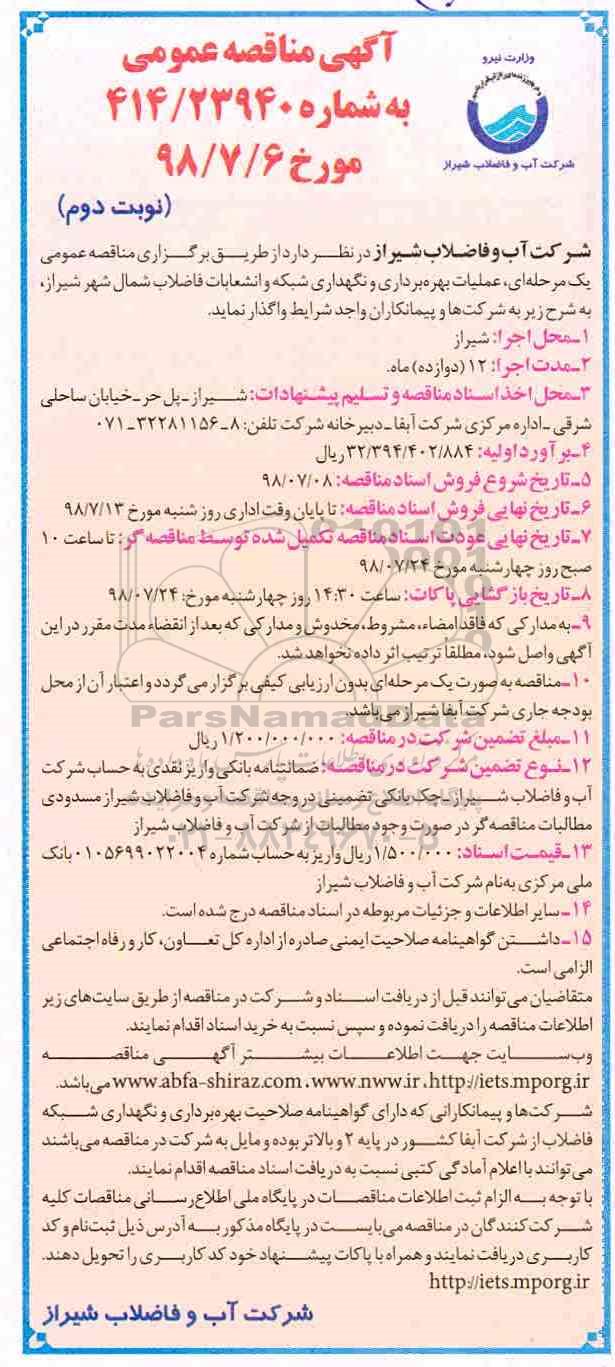 آگهی مناقصه عمومی
به شماره ۴۱۴/۲۳۹۴۰
مورخ ۹۸/۷/۶
(نوبت دوم)
وزارت نیرو
شرکت آب و فاضلاب شیراز
شرکت آب و فاضلاب شیراز در نظر دارد از طریق برگزاری مناقصه عمومی
یک مرحله‌ای، عملیات بهره‌برداری و نگهداری شبکه و انشعابات فاضلاب شمال شهر شیراز،
به شرح زیر به شرکت‌ها و پیمانکاران واجد شرایط واگذار نماید.
۱ـ محل اجرا: شیراز
۲ـ مدت اجرا: ۱۲ (دوازده) ماه.
۳ـ محل اخذ اسناد مناقصه و تسلیم پیشنهادات: شیراز ـ پل حر ـ خیابان ساحلی
شرقی ـ اداره مرکزی شرکت آبفا ـ دبیرخانه شرکت تلفن: ۸ ـ ۳۲۲۸۱۱۵۶ ـ ۰۷۱
۴ـ برآورد اولیه: ۳۲/۳۹۴/۴۰۲/۸۸۴ ریال
۵ـ تاریخ شروع فروش اسناد مناقصه: ۹۸/۰۷/۰۸
۶ـ تاریخ نهایی فروش اسناد مناقصه: تا پایان وقت اداری روز شنبه مورخ ۹۸/۷/۱۳
۷ـ تاریخ نهایی عودت اسناد مناقصه تکمیل شده توسط مناقصه گر: تا ساعت ۱۰
صبح روز چهارشنبه مورخ ۹۸/۰۷/۲۴
۸ـ تاریخ بازگشایی پاکات: ساعت ۱۴:۳۰ روز چهارشنبه مورخ: ۹۸/۰۷/۲۴
۹ـ به مدارکی که فاقد امضاء، مشروط، مخدوش و مدارکی که بعد از انقضاء مدت مقرر در این
آگهی واصل شود، مطلقا ترتیب اثر داده نخواهد شد.
۱۰ـ مناقصه به صورت یک مرحله‌ای بدون ارزیابی کیفی برگزار می گردد و اعتبار آن از محل
بودجه جاری شرکت آبفا شیراز می‌باشد.
ParsNamadData
۱۱ـ مبلغ تضمین شرکت در مناقصه: ۱/۲۰۰/۰۰۰/۰۰۰ ریال
۱۲ـ نوع تضمین شرکت در مناقصه: ضمانتنامه بانکی واریز نقدی به حساب شرکت
آب و فاضلاب شیراز ـ چک بانکی تضمینی در وجه شرکت آب و فاضلاب شیراز مسدودی
مطالبات مناقصه گر در صورت وجود مطالبات از شرکت آب و فاضلاب شیراز
۱۳ـ قیمت اسناد: ۱/۵۰۰/۰۰۰ ریال واریز به حساب شماره ۰۱۰۵۶۹۹۰۲۲۰۰۴ بانک
ملی مرکزی به‌نام شرکت آب و فاضلاب شیراز
۱۴ـ سایر اطلاعات و جزئیات مربوطه در اسناد مناقصه درج شده است.
۱۵ـ داشتن گواهینامه صلاحیت ایمنی صادره از اداره کل تعاون، کار و رفاه اجتماعی
الزامی است.
متقاضیان می‌توانند قبل از دریافت اسناد و شرکت در مناقصه از طریق سایت‌های زیر
اطلاعات مناقصه را دریافت نموده و سپس نسبت به خرید اسناد اقدام نمایند.
وب‌سایت جهت اطلاعات بیشتر آگهی مناقصه
http://iets.mporg.ir ، www.nww.ir ، www.abfa-shiraz.com می‌باشد.
شرکت‌ها و پیمانکارانی که دارای گواهینامه صلاحیت بهره‌برداری و نگهداری شبکه
فاضلاب از شرکت آبفا کشور در پایه ۲ و بالاتر بوده و مایل به شرکت در مناقصه می‌باشند
می‌توانند با اعلام آمادگی کتبی نسبت به دریافت اسناد مناقصه اقدام نمایند.
با توجه به الزام ثبت اطلاعات مناقصات در پایگاه ملی اطلاع‌رسانی مناقصات کلیه
شرکت کنندگان در مناقصه می‌بایست در پایگاه مذکور به آدرس ذیل ثبت‌نام و کد
کاربری دریافت نمایند و همراه با پاکات پیشنهاد خود کد کاربری را تحویل دهند.
http://iets.mporg.ir
شرکت آب و فاضلاب شیراز